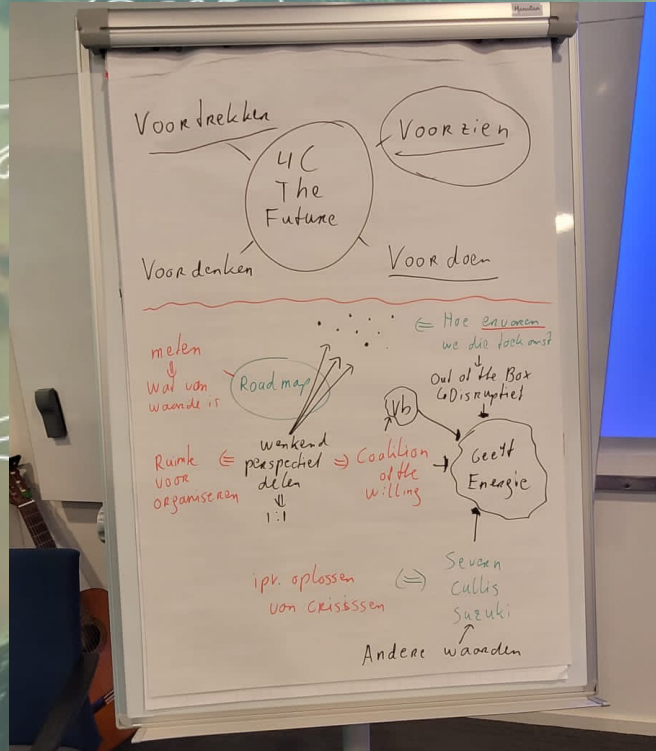 Voortrekken
Voorzien
4C
The
Future
Voordenken
Voordoen
⇐ Hoe ervaren
we die toekomst
meten
⇓
Wat van
waarde is
Roadmap
Out of the Box
↳ Disruptief
Vb
Geeft
Energie
Ruimte
voor
organiseren
⇐
wenkend
perspectief
delen
⇓
1:1
⇒ Coalition
of the
willing
ipv. oplossen
van crisissen
⇔
Severn
Cullis
Suzuki
Andere waarden